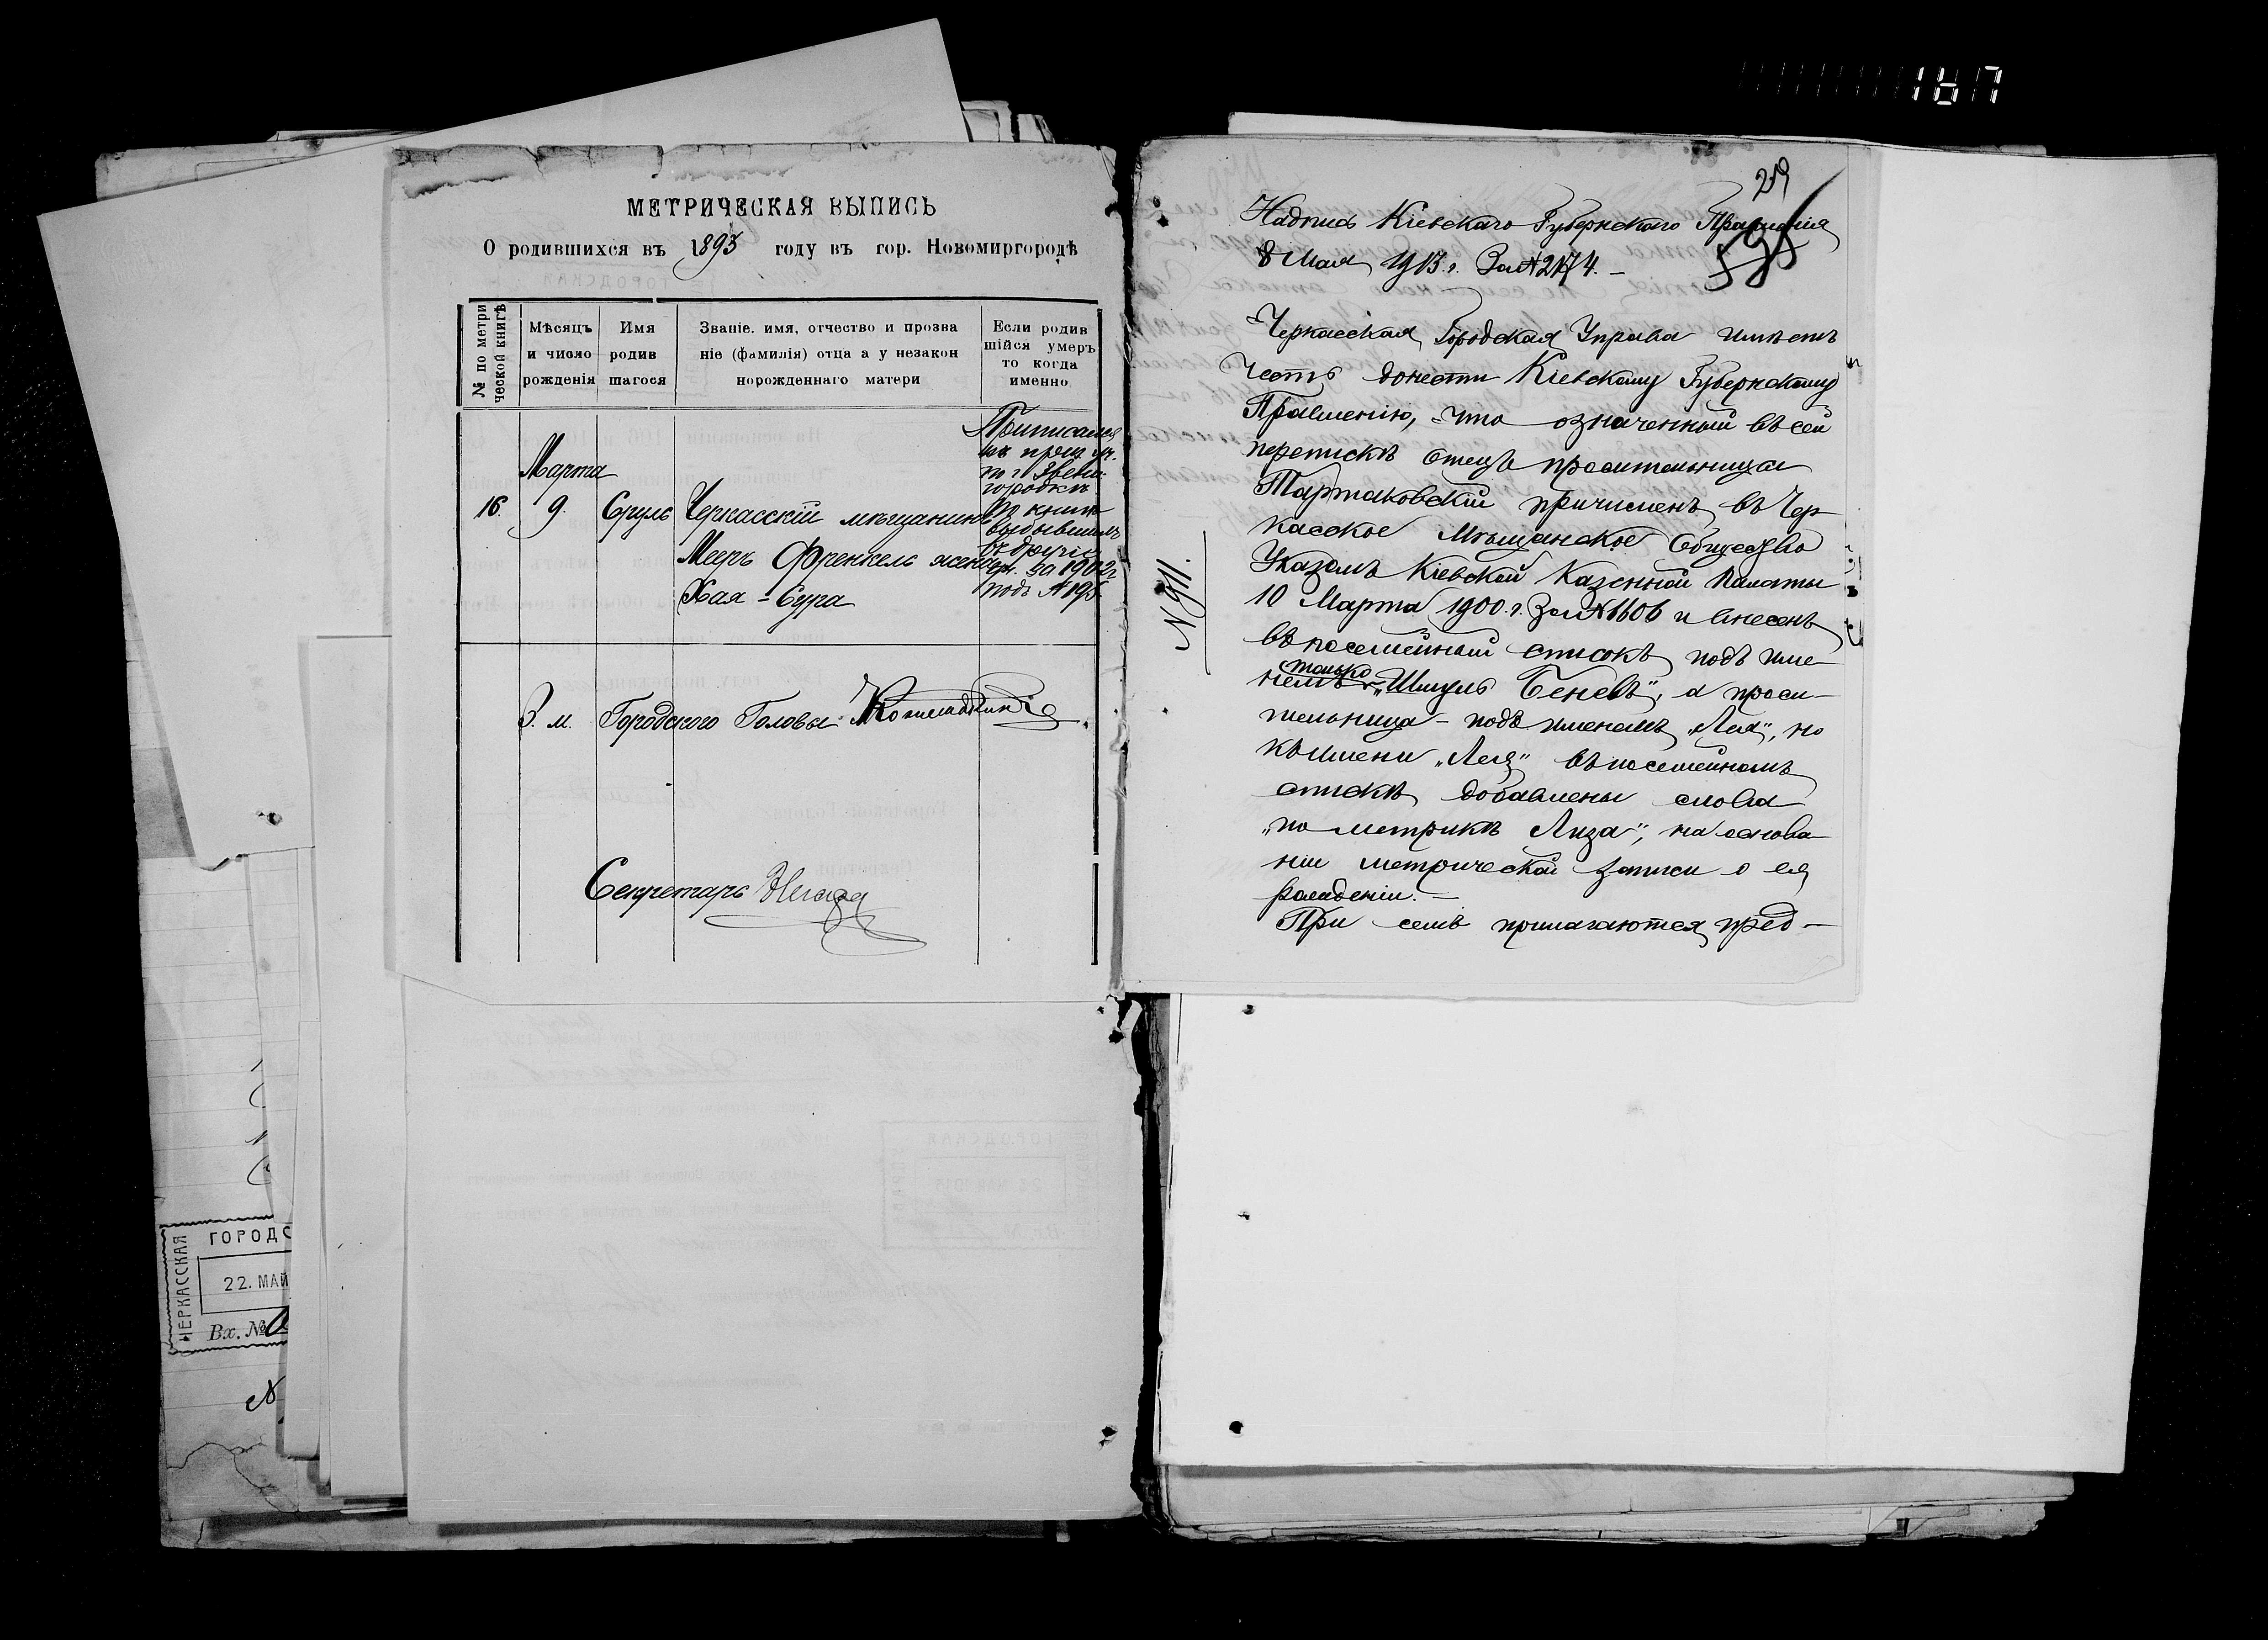 187
МЕТРИЧЕСКАЯ ВЫПИСЬ
О родившихся въ 1893 году въ гор. Новомиргородѣ
№ по метрической книгѣ
Мѣсяцъ и число рожденія
Имя родившагося
Званіе. имя, отчество и прозваніе (фамилія) отца а у незаконнорожденнаго матери
Если родившійся умеръ то когда именно
16.
Марта
9.
Сруль
Черкасскій мѣщанинъ
Меръ Френкель жена
Хая - Сура
Приписался
къ приз. уч.
по г. Звени-
городкѣ
въ книгѣ
выбывшимъ
въ другіе
уч. за 1902 г.
подъ № 195.
З. м. Городского Головы
Секретарь
ЧЕРКАССКАЯ
ГОРОДС
22. МАЙ
Вх. №
N
219
Надпись Кіевскаго Губернскаго Правленія
8 Мая 1913 г. За № 2174. –
Черкасская Городская Управа имѣетъ
честь донести Кіевскому Губернскому
Правленію, что означенный въ сей
перепискѣ отецъ просительницы
Тартаковскій причисленъ въ Чер-
касское Мѣщанское Общество
Указомъ Кіевской Казенной Палаты
10 Марта 1900 г. За № 1606 и внесенъ
въ посемейный списокъ подъ име-
только
немъ „Шмуль Беневъ", а проси-
тельница – подъ именемъ „Лея", но
къ имени „Лея" въ посемейномъ
спискѣ добавлены слова
„по метрикѣ Лиза", на основа-
ніи метрической записи о ея
рожденіи. –
При семъ прилагаются пред-
N 911.